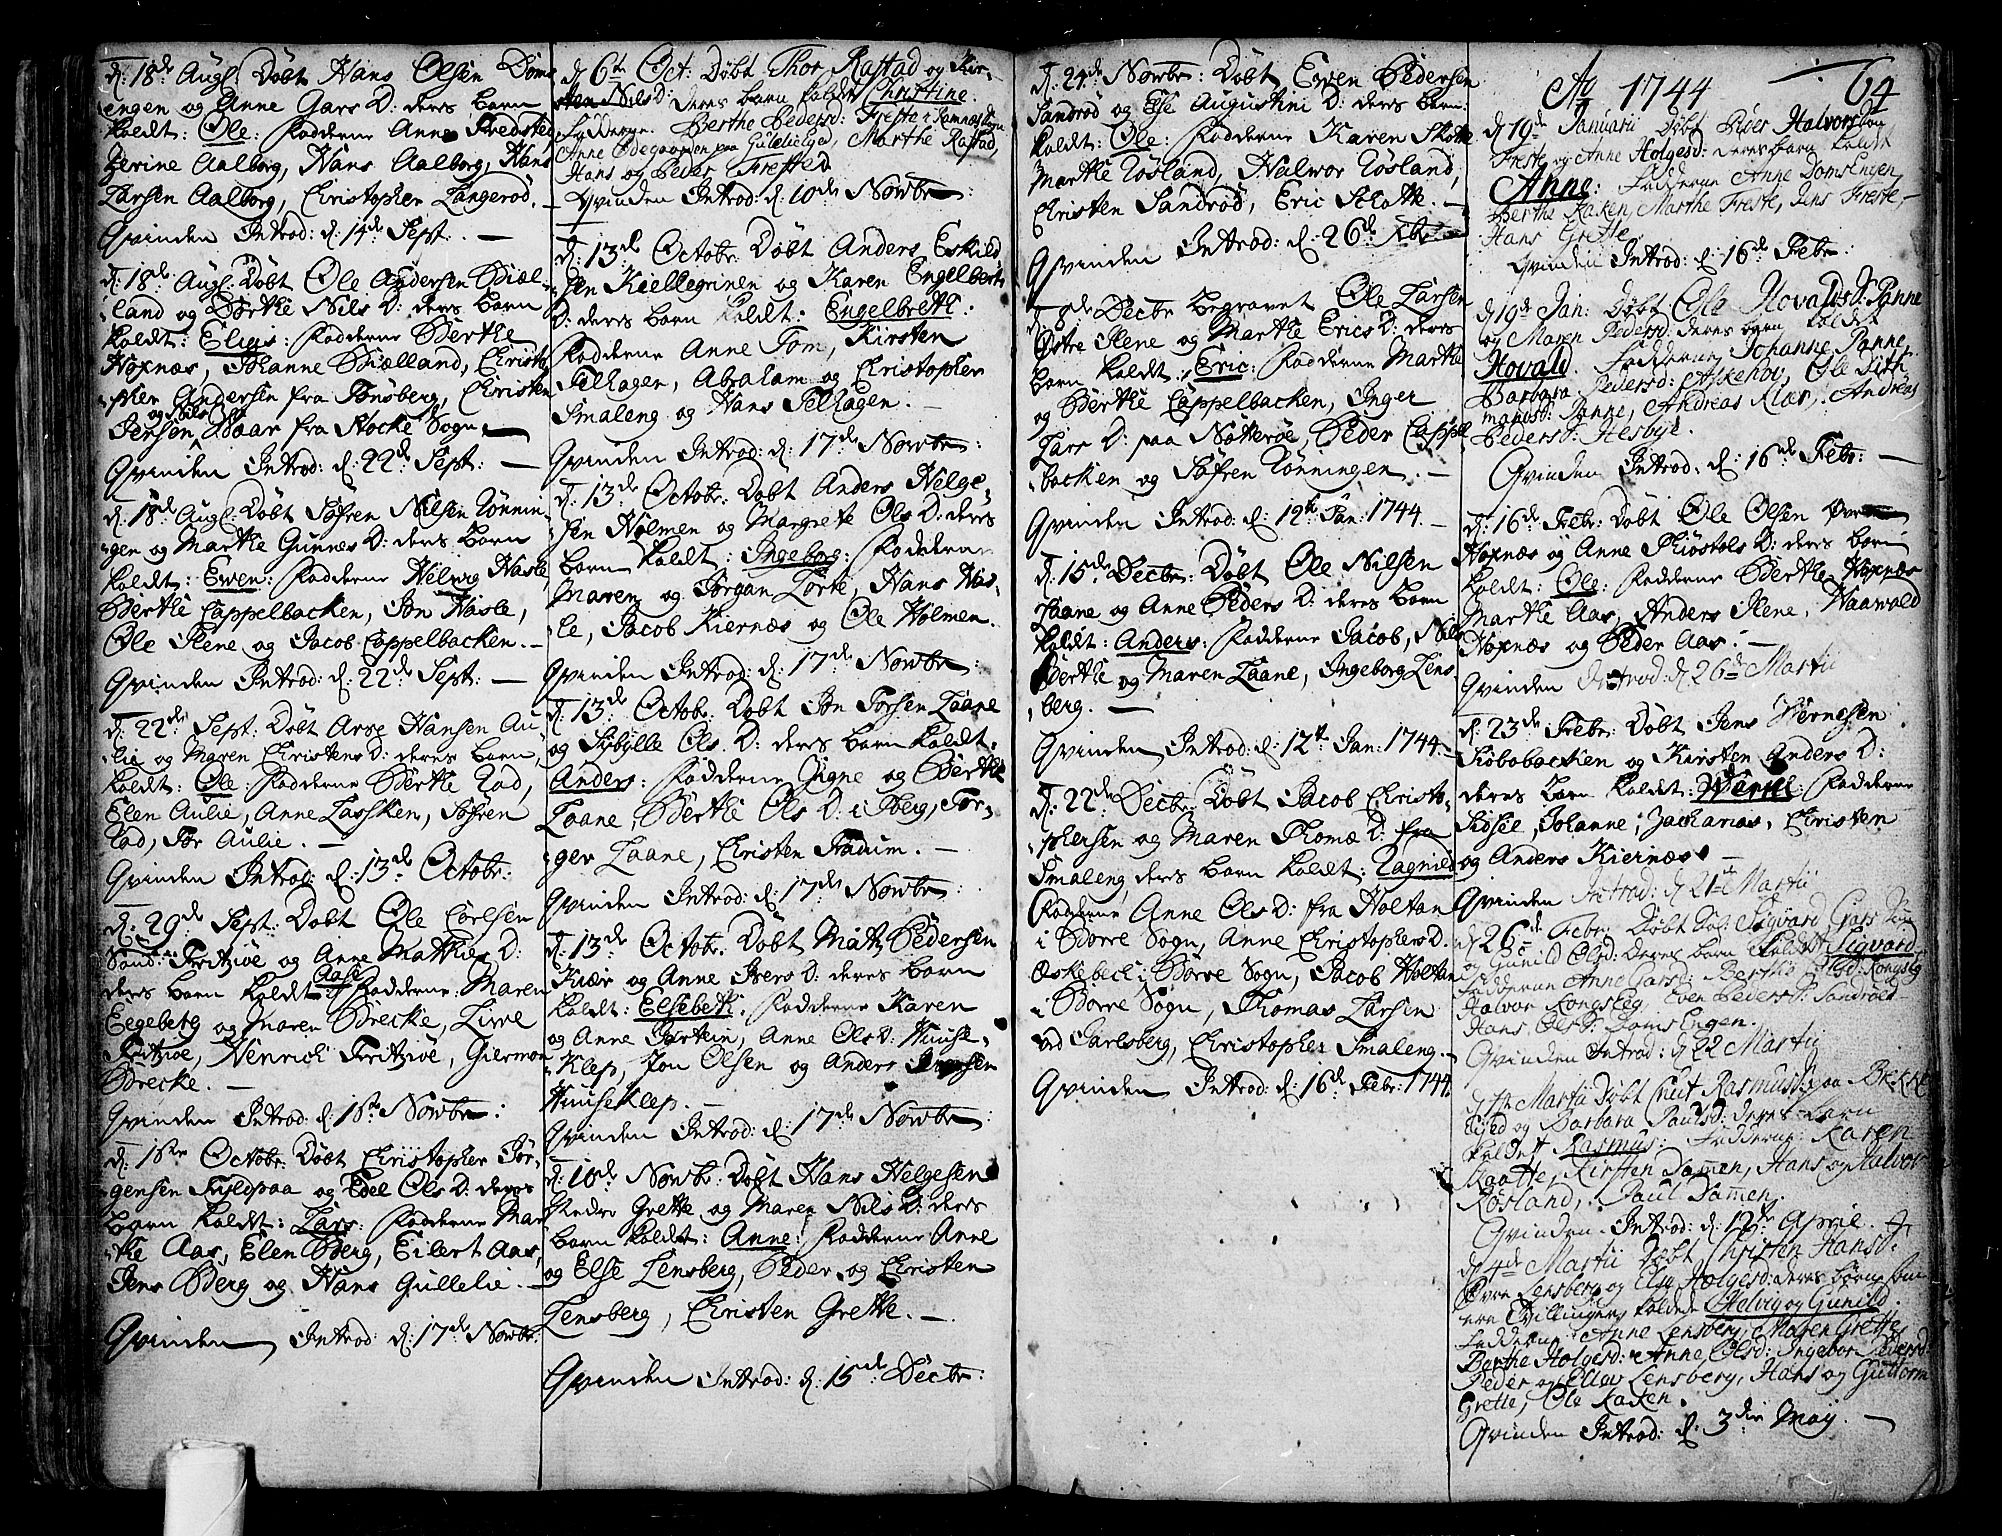 d: 18de Aug: Døbt Hans Olsen Doms
engen og Anne Gars D: deres barn
kaldt: Ole: Fadderne Anne Fredsted
Zerine Aalborg, Hans Aalborg, Hans
Larsen Aalborg, Christopher Langerød.
Qvinden Introd: d: 14de Sept:
d: 18de Aug: Døbt Ole Andersen Biæl-
land og Dorthe Nils D: deres barn
kaldt: Elias: Fadderne Berthe
Hoxnæs, Johanne Biælland, Christo-
pher Andersen fra Tønsberg, Christen
og Nils
Jensen, Waar fra Stocke Sogn.
Qvinden Introd: d: 22de Sept:
d: 18de Aug: Døbt Søfren Nilsen Rønnin-
gen og Marthe Gunnes D: deres barn
kaldt: Ewen: Fadderne Helwig Hasle
Berthe Cappelbacken, Jon Hasle,
Ole Ilene og Jacob Cappelbacken.
Qvinden Introd: d: 22de Sept:
d: 22de Sept: Døbt Arse Hansen Au-
lie og Maren Christens D: deres barn
kaldt: Ole: Fadderne Berthe Rad,
Elen Aulie, Anne Larsken, Søfren
Rad, Jør Aulie.
Qvinden Introd: d: 13de Octobr:
d: 29de Sept: Døbt Ole Corlsen
Sand: Fritzøe og Anne Mathies D:
Aase
deres barn kaldt Fadderne: Maren
Egeberg og Maren Brecke, Live
Fritzöe, Henrich Fritzöe, Giermon
Brecke.
Qvinden Introd: d: 18de Nowbr:
d: 16de Octobr: Døbt Christopher Jør-
gensen Fyldpaa og Edel Ols D: deres
barn kaldt: Lars: Fadderne Mar-
the Aas, Elen Berg, Eilert Aas,
Jens Berg og Hans Gullelie.
Qvinden Introd: d: 17de Nowbr:
d 6te Oct: Døbt Thor Rastad og Kir-
sten Nils D: deres barn kaldet Christine.
Fadderne: Berthe Pedersd: Freste i Ramnæs
Anne Ødegaarden paa Gulleliegrd, Marthe Rastad,
Hans og Peder Freste.
Qvinden Introd: d: 10de Nowbr:
d: 13de Octobr: Døbt Anders Eskild-
sen Kiellegrinen og Karen Engelberts
D: deres barn kaldt: Engelbreth:
Fadderne Anne Tom, Kirsten
Selhagen, Abraham og Christopher
Smaleng og Hans Selhagen.
Qvinden Introd: d: 17de Nowbr:
d: 13de Octobr: Døbt Anders Helge-
sen Holmen og Margrete Ols D: deres
barn kaldt: Ingeborg: Fadderne
Maren og Jørgen Lorte, Hans Has-
le, Jacob Kiernæs og Ole Holmen.
Qvinden Introd: d: 17de Nowbr:
d: 13de Octobr: Døbt Jon Torsen Laane
og Sybylle Ols D: deres barn kaldt:
Anders: Fadderne Signe og Berthe
Laane, Berthe Ols D: i Berg, Tor-
ger Laane, Christen Fadum.
Qvinden Introd: d: 17de Nowbr:
d: 13de Octobr: Døbt Matz Pedersen
Kiær og Anne Ivers D: deres barn
kaldt: Elsebeth: Fadderne Karen
og Anne Jørtein, Anne Ols D: Huuse-
Klep, Jon Olsen og Anders Jensen
Huuseklep.
Qvinden Introd: d: 17de Nowbr:
d: 10de Nowbr: Døbt Hans Helgesen
Nedre Grette og Maren Nils D: deres
barn kaldt: Anne: Fadderne Anne
og Else Lensberg, Peder og Christen
Lensberg, Christen Grette.
Qvinden Introd: d: 15de Decbr:
d: 24de Nowbr: Døbt Ewen Pedersen
Sandrød og Else Augustini D: deres barn
kaldt: Ole: Fadderne Karen Skotte
Marthe Røsland, Halwor Røsland,
Christen Sandrød, Eric Skotte.
Qvinden Introd: d: 26de Xbr:
d: 8de Decbr begravet Ole Larsen
Østre Ilene og Marthe Erics D: deres
barn kaldt: Eric: Fadderne Marthe
og Berthe Cappelbacken, Inger
Lars D: paa Nøtterøe, Peder Cappel-
backen og Søfren Rønningen.
Qvinden Introd: d: 12te Jan: 1744.
d: 15de Decbr: Døbt Ole Nilsen
Laane og Anne Peders D: deres barn
kaldt: Anders: Fadderne Jacob, Nils
Berthe og Maren Laane, Ingeborg Lens-
berg.
Qvinden Introd: d: 12te Jan: 1744.
d: 22de Decbr: Døbt Jacob Christo-
phersen og Maren Thomæ D: fra
Smaleng deres barn kaldt: Ragnild
Fadderne Anne Ols D: fra Holtan
i Borre Sogn, Anne Christophers D:
Æskebech i Borre Sogn, Jacob Holtan
i Borre Sogn, Thomas Larsen
ved Jarlsberg, Christopher Smaleng.
Qvinden Introd: d: 16de Febr: 1744.
Ao 1744 64
d 19de Januarii Døbt Iver Halvors
Freste og Anne Holgesd: deres barn kaldt
Anne: Fadderne Anne Doms Engen
Berthe Raken, Marthe Freste, Jens Freste,
Hans Grette.
Qvinden Introd: d: 16de Febr:
d 19de Jan: Døbt Ole Hovalds S: Panne
og Maren Pedersd: deres barn kaldet
Hovald. Fadderne Johanne Panne,
Barbara Pedersd: Askehov, Ole Dith-
mars: Panne, Andreas Klar, Andreas
Peders S: Hesbye.
Qvinden Introd: d: 16de Febr:
d: 16de Febr: Døbt Ole Olsen Øvre
Hoxnæs og Anne Kiøstols D: deres barn
kaldt: Ole: Fadderne Berthe Hoxnæs
Marthe Aas, Anders Ilene, Haawald
Hoxnæs og Peder Aas.
Qvinden Introd: d 26de Martii
d: 23de Febr: Døbt Jens Wernesen
Robobacken og Kirsten Anders D:
deres barn kaldt: Fadderne
Sidsel, Johanne, Zacharias, Christen
og Anders Kiernæs
Qvinden Introd: d 21de Martii
d 26de Febr: Døbt Sol: Sigvard Lars
og Gunild Olsd: deres barn kaldt Sigvard
Fadderne Anne Larsd: Berthe Olsd: Kongsteg
Halvor Kongsteg, Even Peders S: Sandrøed
Hans Ols S: Doms Engen.
Qvinden Introd: d 22 Martii
d 1te Martii Døbt Knut Rasmus S: paa Bekke
Eijed og Barbara Paulsd: deres barn
kaldet Rasmus: Fadderne: Karen
Skaatte, Kirsten Dammen, Hans og Halvor
Røsland, Paul Dammen.
Qvinden Introd: d: 12te April.
d 4de Martii Døbt Christen Hans S:
Øvre Lensberg og Else Holgesd: deres børn som
ere Tvillinger kaldede Helvig og Gunild.
Fadderne: Anne Lensberg, Maren Grette,
Berthe Holgesd: Anne Olsd: Ingebor Pedersd:
Peder og Ellav Lensberg, Hans og Guttorm
Grette, Ole Raken.
Qvinden Introd: d: 3die Maij.